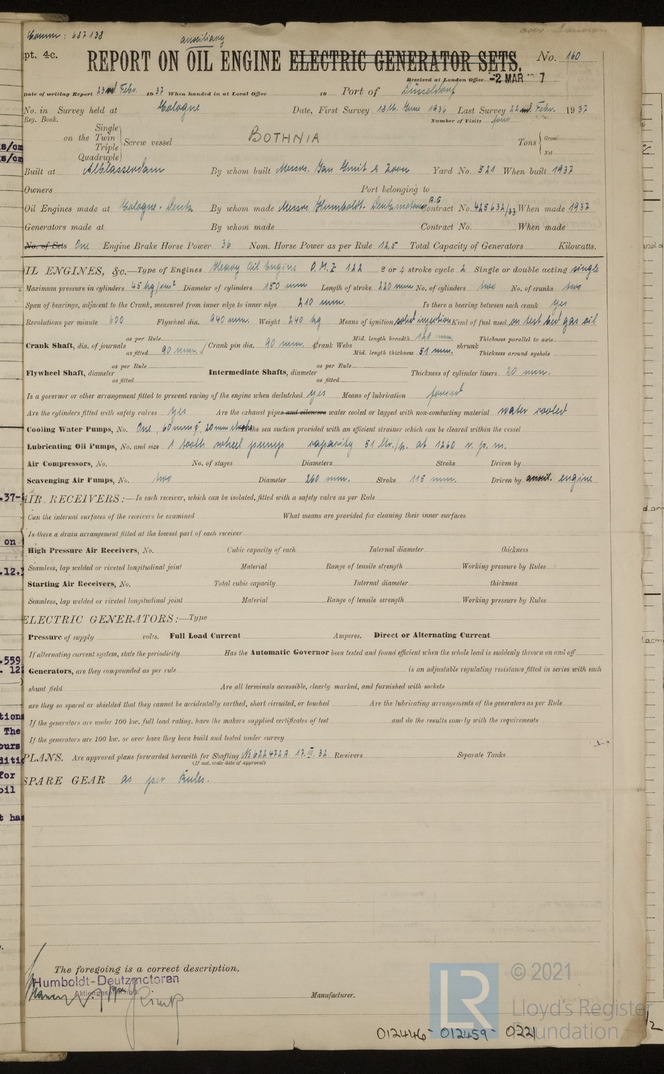 auxiliary
pt. 4c.
REPORT ON OIL ENGINE ELECTRIC GENERATOR SETS. No. 160
Received at London Office -2 MAR 7
Date of writing Report 23rd Febr. 1937 When handed in at Local Office 19 Port of Düsseldorf
No. in Survey held at Cologne Date, First Survey 19 Last Survey 22nd Febr. 1937
Reg. Book. Number of Visits four
Single
on the Twin Screw vessel BOTHNIA Tons Gross
Triple Net
Quadruple
Built at Alblasserdam By whom built Messrs. Yard No. 521 When built 1937
Owners Port belonging to
Oil Engines made at Cologne-Deutz By whom made Messrs Humboldt-Deutzmotoren A.G. Contract No. When made 1937
Generators made at By whom made Contract No. When made
No. of Sets One Engine Brake Horse Power 36 Nom. Horse Power as per Rule 12,5 Total Capacity of Generators Kilowatts.
OIL ENGINES, &c.—Type of Engines Heavy Oil Engine O.M.Z 122 2 or 4 stroke cycle 2 Single or double acting single
Maximum pressure in cylinders 45 kg/cm² Diameter of cylinders 150 mm Length of stroke 220 mm No. of cylinders two No. of cranks two
Span of bearings, adjacent to the Crank, measured from inner edge to inner edge 210 mm. Is there a bearing between each crank yes
Revolutions per minute 600 Flywheel dia. 940 mm. Weight 240 kg Means of ignition solid injection Kind of fuel used on test bed gas oil
Crank Shaft, dia. of journals as per Rule as fitted 90 mm. Crank pin dia. 90 mm. Crank Webs Mid. length breadth Mid. length thickness 51 mm. shrunk Thickness parallel to axis Thickness around eyehole
Flywheel Shaft, diameter as per Rule as fitted Intermediate Shafts, diameter as per Rule as fitted Thickness of cylinder liners 20 mm.
Is a governor or other arrangement fitted to prevent racing of the engine when declutched yes Means of lubrication forced
Are the cylinders fitted with safety valves yes Are the exhaust pipes and silencers water cooled or lagged with non-conducting material water cooled
Cooling Water Pumps, No. One, 60 mm 20 mm stroke Is the sea suction provided with an efficient strainer which can be cleared within the vessel
Lubricating Oil Pumps, No. and size 1 tooth wheel pump capacity 51 ltr./h. at 1260 r.p.m.
Air Compressors, No. No. of stages Diameters Stroke Driven by
Scavenging Air Pumps, No. two Diameter 260 mm. Stroke 115 mm. Driven by auxil. engine
AIR RECEIVERS:—Is each receiver, which can be isolated, fitted with a safety valve as per Rule
Can the internal surfaces of the receivers be examined What means are provided for cleaning their inner surfaces
Is there a drain arrangement fitted at the lowest part of each receiver
High Pressure Air Receivers, No. Cubic capacity of each Internal diameter thickness
Seamless, lap welded or riveted longitudinal joint Material Range of tensile strength Working pressure by Rules
Starting Air Receivers, No. Total cubic capacity Internal diameter thickness
Seamless, lap welded or riveted longitudinal joint Material Range of tensile strength Working pressure by Rules
ELECTRIC GENERATORS:—Type
Pressure of supply volts. Full Load Current Amperes. Direct or Alternating Current
If alternating current system, state the periodicity Has the Automatic Governor been tested and found efficient when the whole load is suddenly thrown on and off
Generators, are they compounded as per rule is an adjustable regulating resistance fitted in series with each
shunt field Are all terminals accessible, clearly marked, and furnished with sockets
are they so spaced or shielded that they cannot be accidentally earthed, short circuited, or touched Are the lubricating arrangements of the generators as per Rule
If the generators are under 100 kw. full load rating, have the makers supplied certificates of test and do the results comply with the requirements
If the generators are 100 kw. or over have they been built and tested under survey
PLANS. Are approved plans forwarded herewith for Shafting Receivers Separate Tanks
(If not, state date of approval)
SPARE GEAR as per Rules.
The foregoing is a correct description,
Humboldt-Deutzmotoren
Manufacturer.
© 2021
Lloyd's Register
Foundation
012446-012459-0221